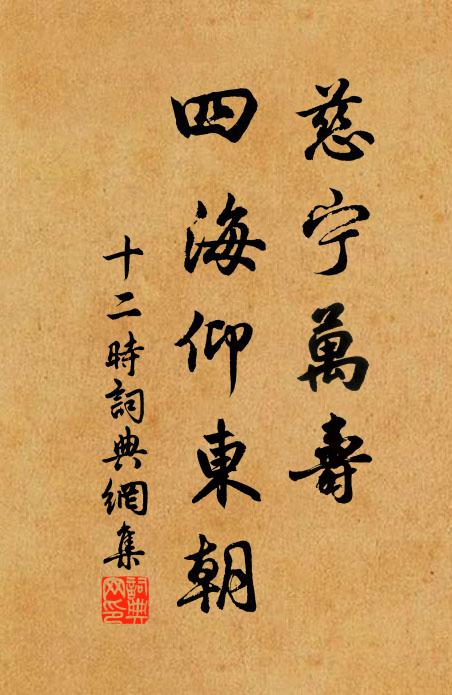 慈宁萬壽
四海仰東朝
十二時詞典網集
詞典网印